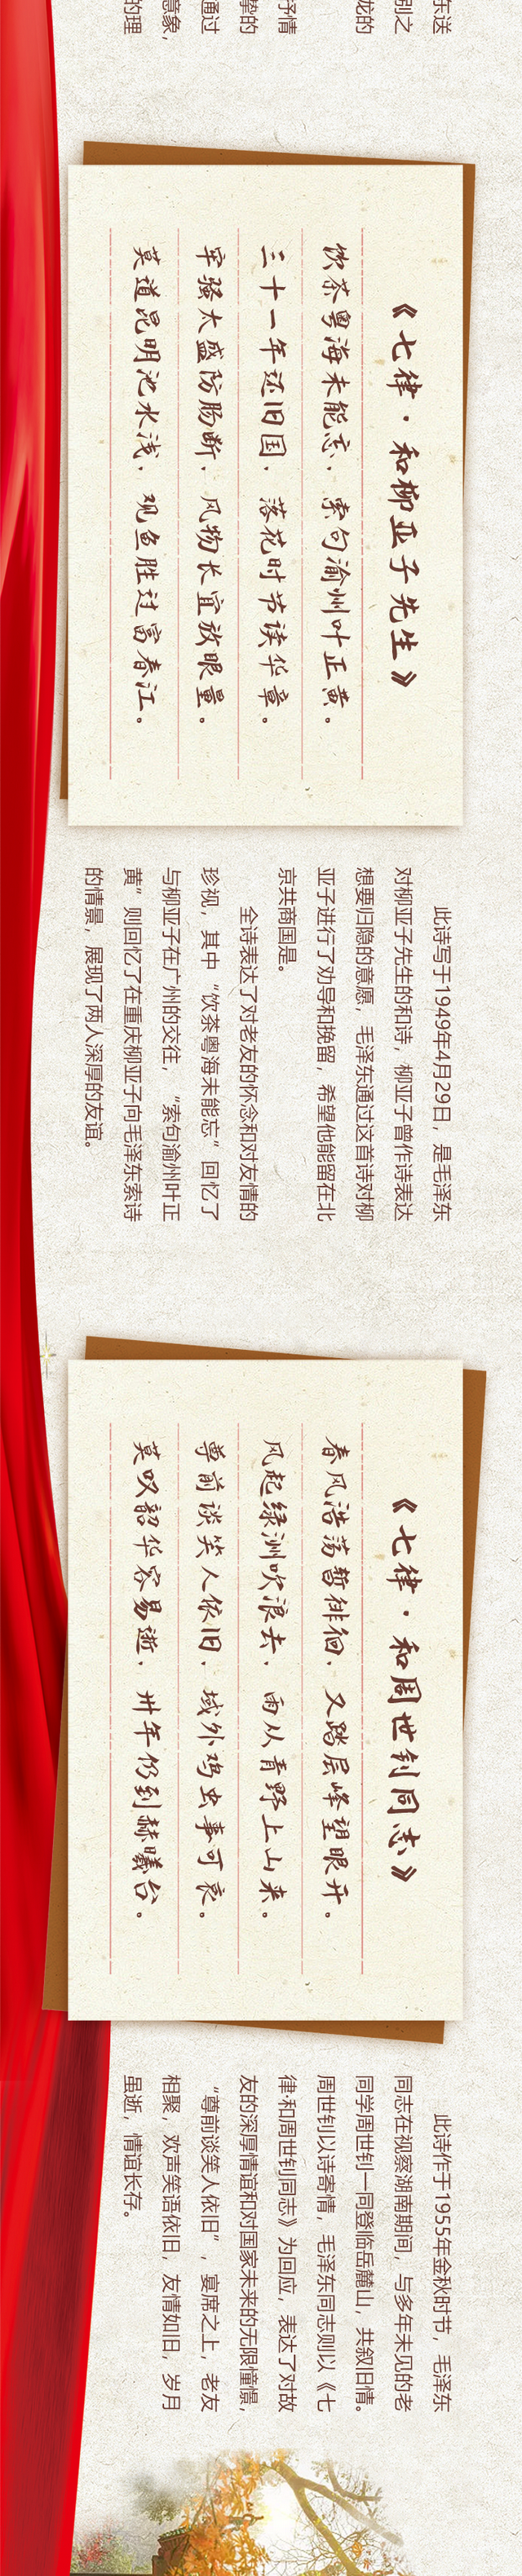 东送
别之
龙的
抒情
挚的
通过
意象，
的理
《七律·和柳亚子先生》
饮茶粤海未能忘，索句渝州叶正黄。
三十一年还旧国，落花时节读华章。
牢骚太盛防肠断，风物长宜放眼量。
莫道昆明池水浅，观鱼胜过富春江。
此诗写于1949年4月29日，是毛泽东
对柳亚子先生的和诗，柳亚子曾作诗表达
想要归隐的意愿，毛泽东通过这首诗对柳
亚子进行了劝导和挽留，希望他能留在北
京共商国是。
全诗表达了对老友的怀念和对友情的
珍视，其中“饮茶粤海未能忘”回忆了
与柳亚子在广州的交往，“索句渝州叶正
黄”则回忆了在重庆柳亚子向毛泽东索诗
的情景，展现了两人深厚的友谊。
《七律·和周世钊同志》
春风浩荡暂徘徊，又踏层峰望眼开。
风起绿洲吹浪去，雨从青野上山来。
尊前谈笑人依旧，域外鸡虫事可哀。
莫叹韶华容易逝，卅年仍到赫曦台。
此诗作于1955年金秋时节，毛泽东
同志在视察湖南期间，与多年未见的老
同学周世钊一同登临岳麓山，共叙旧情。
周世钊以诗寄情，毛泽东同志则以《七
律·和周世钊同志》为回应，表达了对故
友的深厚情谊和对国家未来的无限憧憬，
“尊前谈笑人依旧”，宴席之上，老友
相聚，欢声笑语依旧，友情如旧，岁月
虽逝，情谊长存。